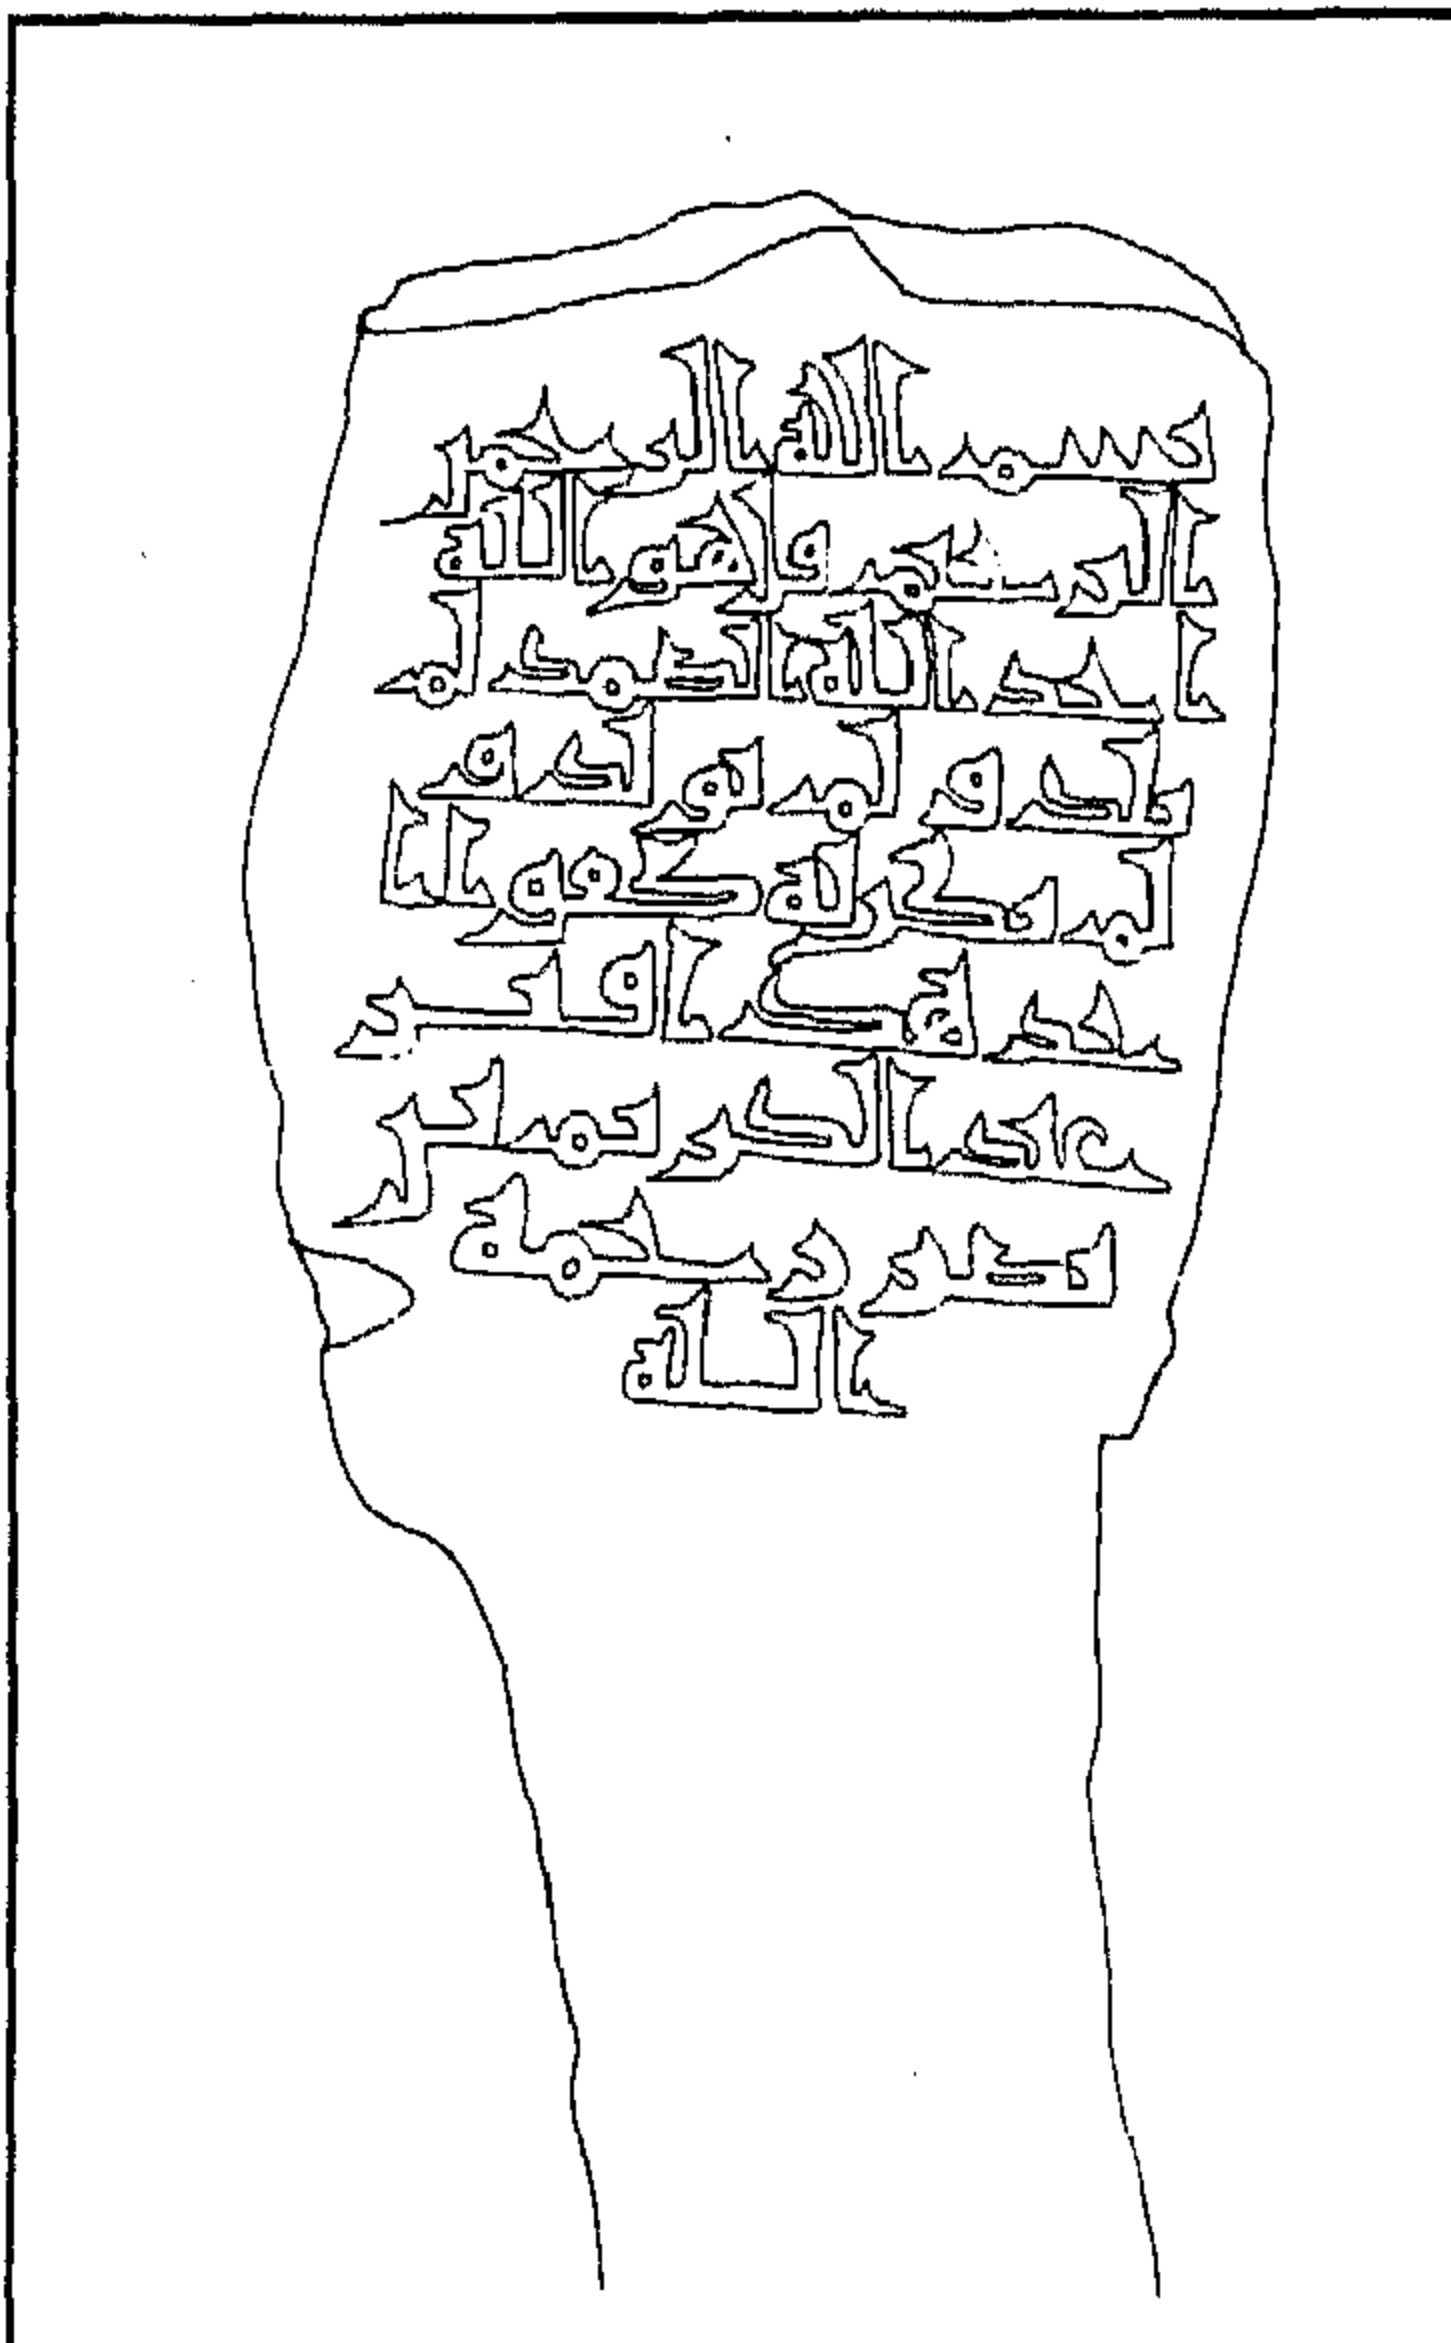 بسم الله الرحمن
الرحيم قل هو الله
احد الله الصمد لم
يلد و لم يولد و
لم يكن له كفوا ا
حد هذا قبر
عبد الكريم بن
رحمه
الله